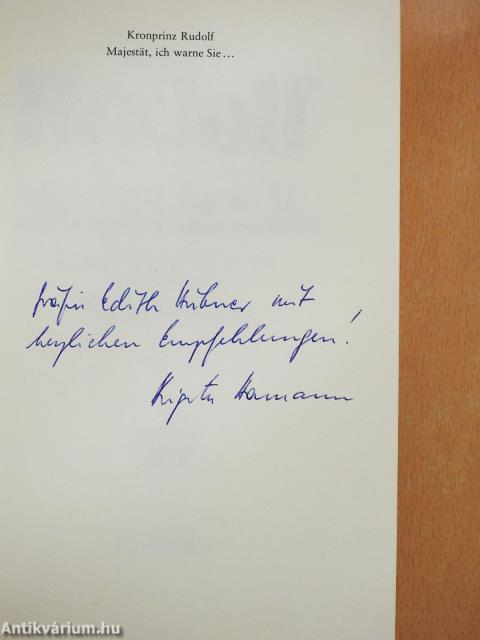 Kronprinz Rudolf
Majestät, ich warne Sie...
Gräfin Edith Hübner mit
herzlichen Empfehlungen!
Brigitte Hamann
Antikvárium.hu